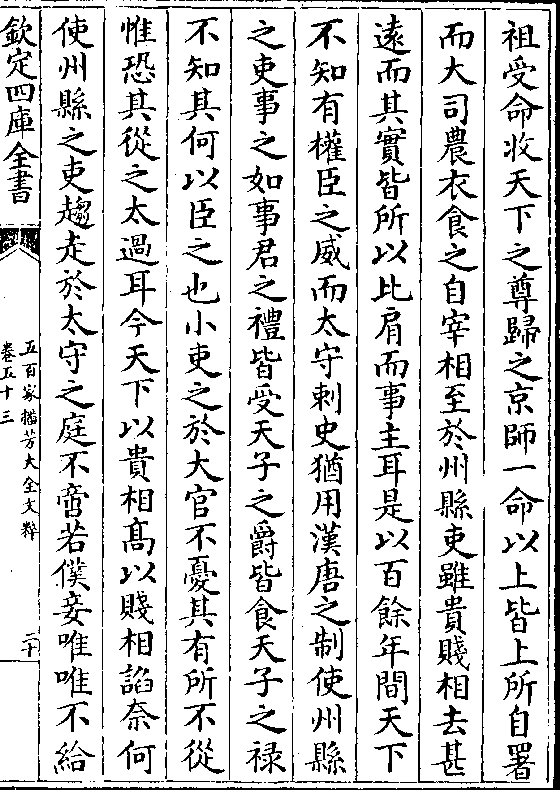 祖受命收天下之尊歸之京師一命以上皆上所自署
而大司農衣食之自宰相至於州縣吏雖貴賤相去甚
遠而其實皆所以比肩而事主耳是以百餘年間天下
不知有權臣之威而太守刺史猶用漢唐之制使州縣
之吏事之如事君之禮皆受天子之爵皆食天子之禄
不知其何以臣之也小吏之於大官不憂其有所不從
惟恐其從之太過耳今天下以貴相髙以賤相諂奈何
使州縣之吏趨走於太守之庭不啻若僕妾唯唯不給
欽定四庫全書
五百家播芳大全文粹
卷五十三
二十